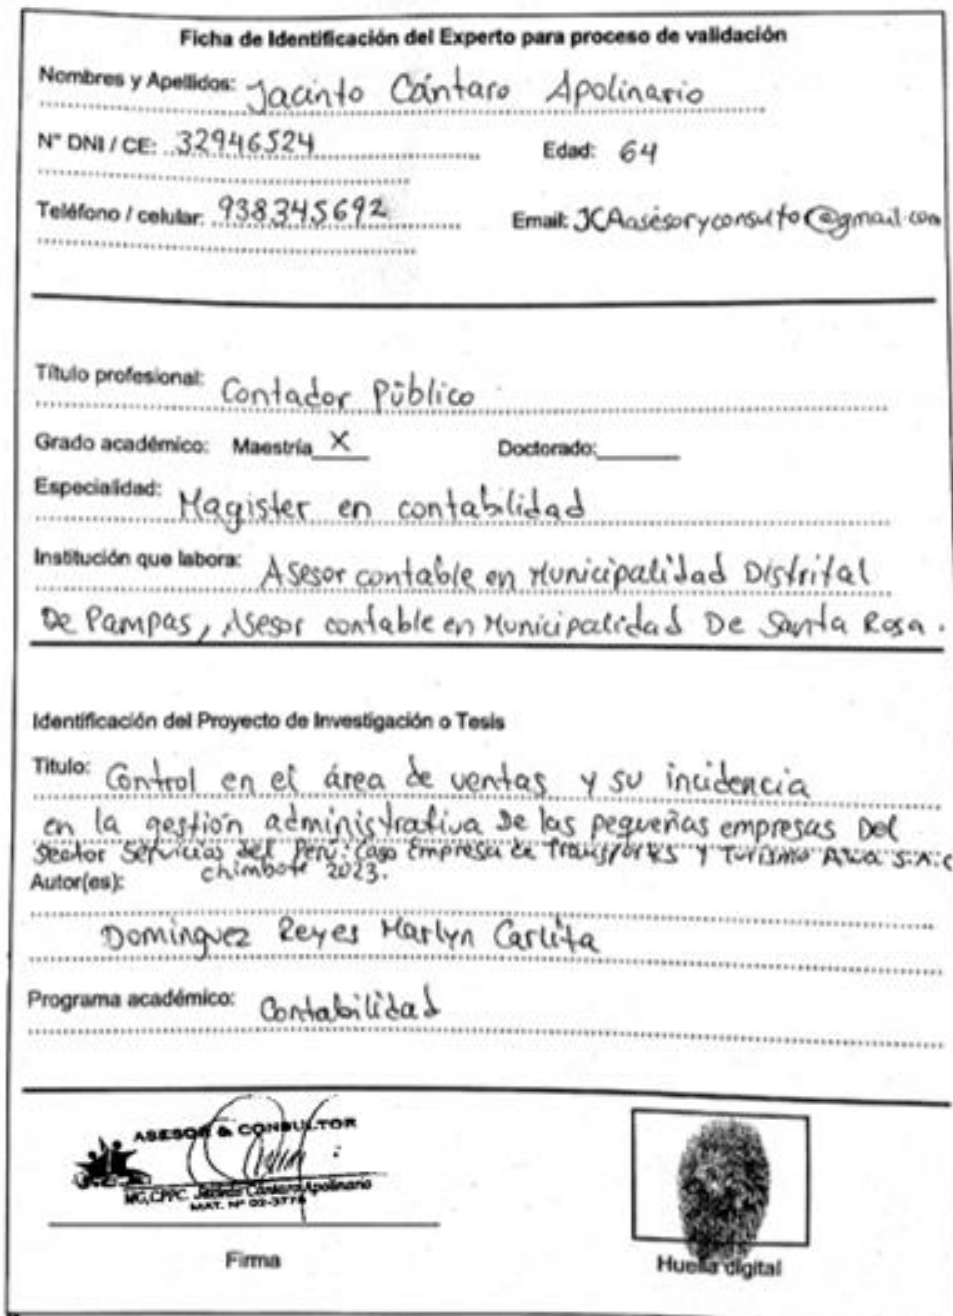 Ficha de Identificación del Experto para proceso de validación
Nombres y Apellidos: Jacinto Cántaro Apolinario
N° DNI / CE: 32946524 Edad: 64
Teléfono / celular: 938345692 Email: JCAasesoryconsulto@gmail.com
Título profesional: Contador Público
Grado académico: Maestría X Doctorado:
Especialidad: Magister en contabilidad
Institución que labora: Asesor contable en Municipalidad Distrital
De Pampas, Asesor contable en Municipalidad De Santa Rosa.
Identificación del Proyecto de Investigación o Tesis
Título: Control en el área de ventas y su incidencia
en la gestión administrativa De las pequeñas empresas Del
Sector Servicios del Perú: Caso Empresa de Transportes y Turismo S.A.C
chimbote 2023.
Autor(es):
Dominguez Reyes Marlyn Carlita
Programa académico: Contabilidad
ASESOR & CONSULTOR
MG.CPPC. Jacinto Cántaro Apolinario
MAT. N° 02-3778
Firma
Huella digital